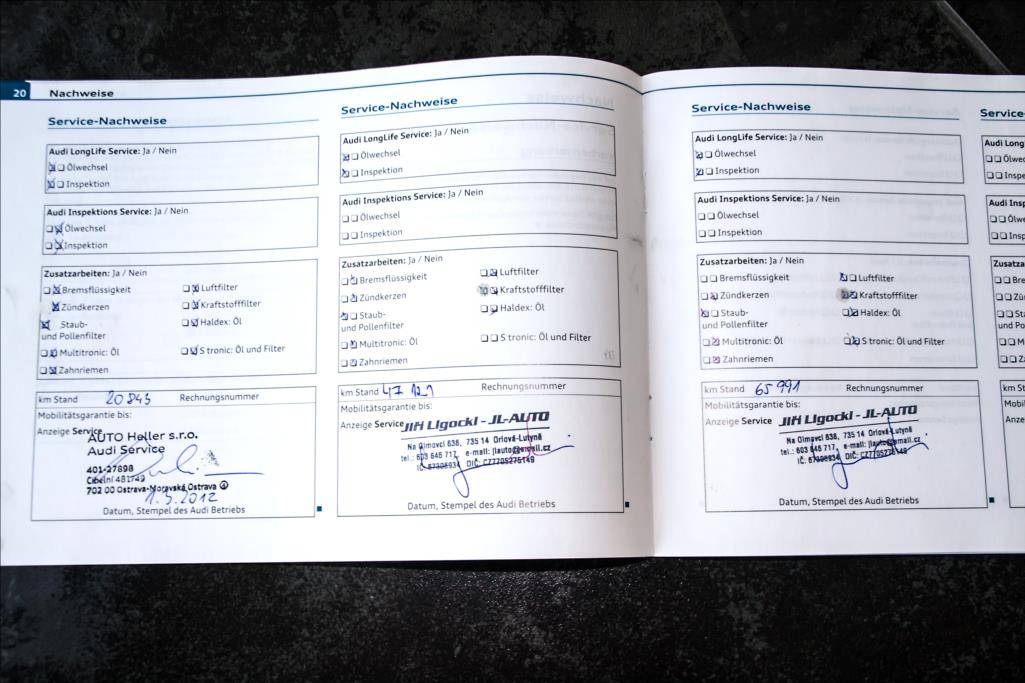 20 Nachweise
Service-Nachweise
Audi LongLife Service: Ja / Nein
Ölwechsel
Inspektion
Audi Inspektions Service: Ja / Nein
Ölwechsel
Inspektion
Zusatzarbeiten: Ja / Nein
Bremsflüssigkeit
Zündkerzen
Staub-
und Pollenfilter
Multitronic: Öl
Zahnriemen
Luftfilter
Kraftstofffilter
Haldex: Öl
S tronic: Öl und Filter
km Stand 20 845 Rechnungsnummer
Mobilitätsgarantie bis:
Anzeige Service
AUTO Heller s.r.o.
Audi Service
401-27898
Cihelní
702 00 Ostrava-Moravská Ostrava
1.3.2012
Datum, Stempel des Audi Betriebs
Service-Nachweise
Audi LongLife Service: Ja / Nein
Ölwechsel
Inspektion
Audi Inspektions Service: Ja / Nein
Ölwechsel
Inspektion
Zusatzarbeiten: Ja / Nein
Bremsflüssigkeit
Zündkerzen
Staub-
und Pollenfilter
Multitronic: Öl
Zahnriemen
Luftfilter
Kraftstofffilter
Haldex: Öl
S tronic: Öl und Filter
km Stand 47 121 Rechnungsnummer
Mobilitätsgarantie bis:
Anzeige Service
Jiří Ligocki - JL-AUTO
Na Olmovci 638, 735 14 Orlová-Lutyně
tel.: 603 646 717, e-mail: jlauto@email.cz
DIČ: CZ7705275149
Datum, Stempel des Audi Betriebs
Service-Nachweise
Audi LongLife Service: Ja / Nein
Ölwechsel
Inspektion
Audi Inspektions Service: Ja / Nein
Ölwechsel
Inspektion
Zusatzarbeiten: Ja / Nein
Bremsflüssigkeit
Zündkerzen
Staub-
und Pollenfilter
Multitronic: Öl
Zahnriemen
Luftfilter
Kraftstofffilter
Haldex: Öl
S tronic: Öl und Filter
km Stand 65 991 Rechnungsnummer
Mobilitätsgarantie bis:
Anzeige Service
Jiří Ligocki - JL-AUTO
Na Olmovci 638, 735 14 Orlová-Lutyně
tel.: 603 646 717, e-mail: jlauto@email.cz
DIČ: CZ7705275149
Datum, Stempel des Audi Betriebs
Service-
Audi Long
Ölwe
Inspe
Audi Inspe
Ölw
Inspe
Zusatza
Br
Zü
St
und Po
M
Z
km St
Mobil
Anzei